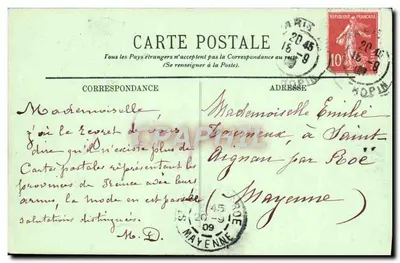 CARTE POSTALE
Tous les Pays étrangers n'acceptent pas la Correspondance au recto
(Se renseigner à la Poste).
CORRESPONDANCE
ADRESSE
Mademoiselle,
j'ai le regret de vous
dire qu'il n'existe plus de
Cartes postales représentant les
provinces de France avec leurs
armes, la mode en est passée
salutations distinguées
M. D.
Mademoiselle Emilie
à Saint-
Aignan par
(Mayenne)
PARIS
20 45
15 -9
CHOPIN
REPUBLIQUE FRANÇAISE
10
20 45
15 -9
CHOPIN
45
20 -9
09
MAYENNE